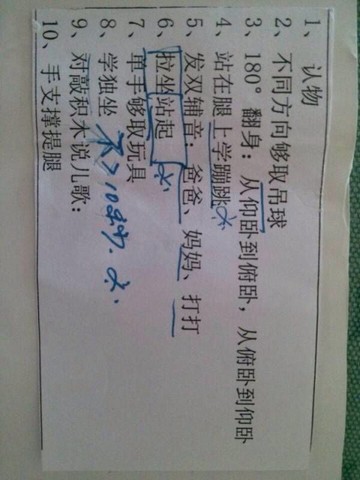 1、认物
2、不同方向够取吊球
3、180°翻身：从仰卧到俯卧，从俯卧到仰卧
4、站在腿上学蹦跳
5、发双辅音：爸爸、妈妈、打打
6、拉坐站起
7、单手够取玩具
8、学独坐 不>10分钟
9、对敲积木说儿歌：
10、手支撑提腿